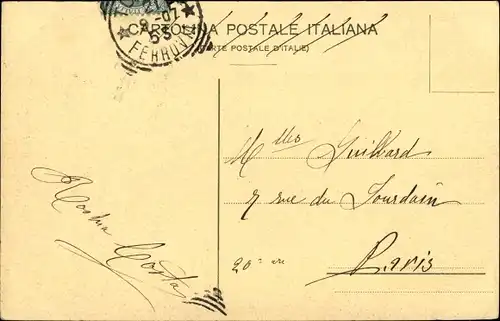 CARTOLINA POSTALE ITALIANA
(CARTE POSTALE D'ITALIE)
-07
FERROVIA
Mlles Guilbard
7 rue du Jourdain
20e arr
Paris
Costa